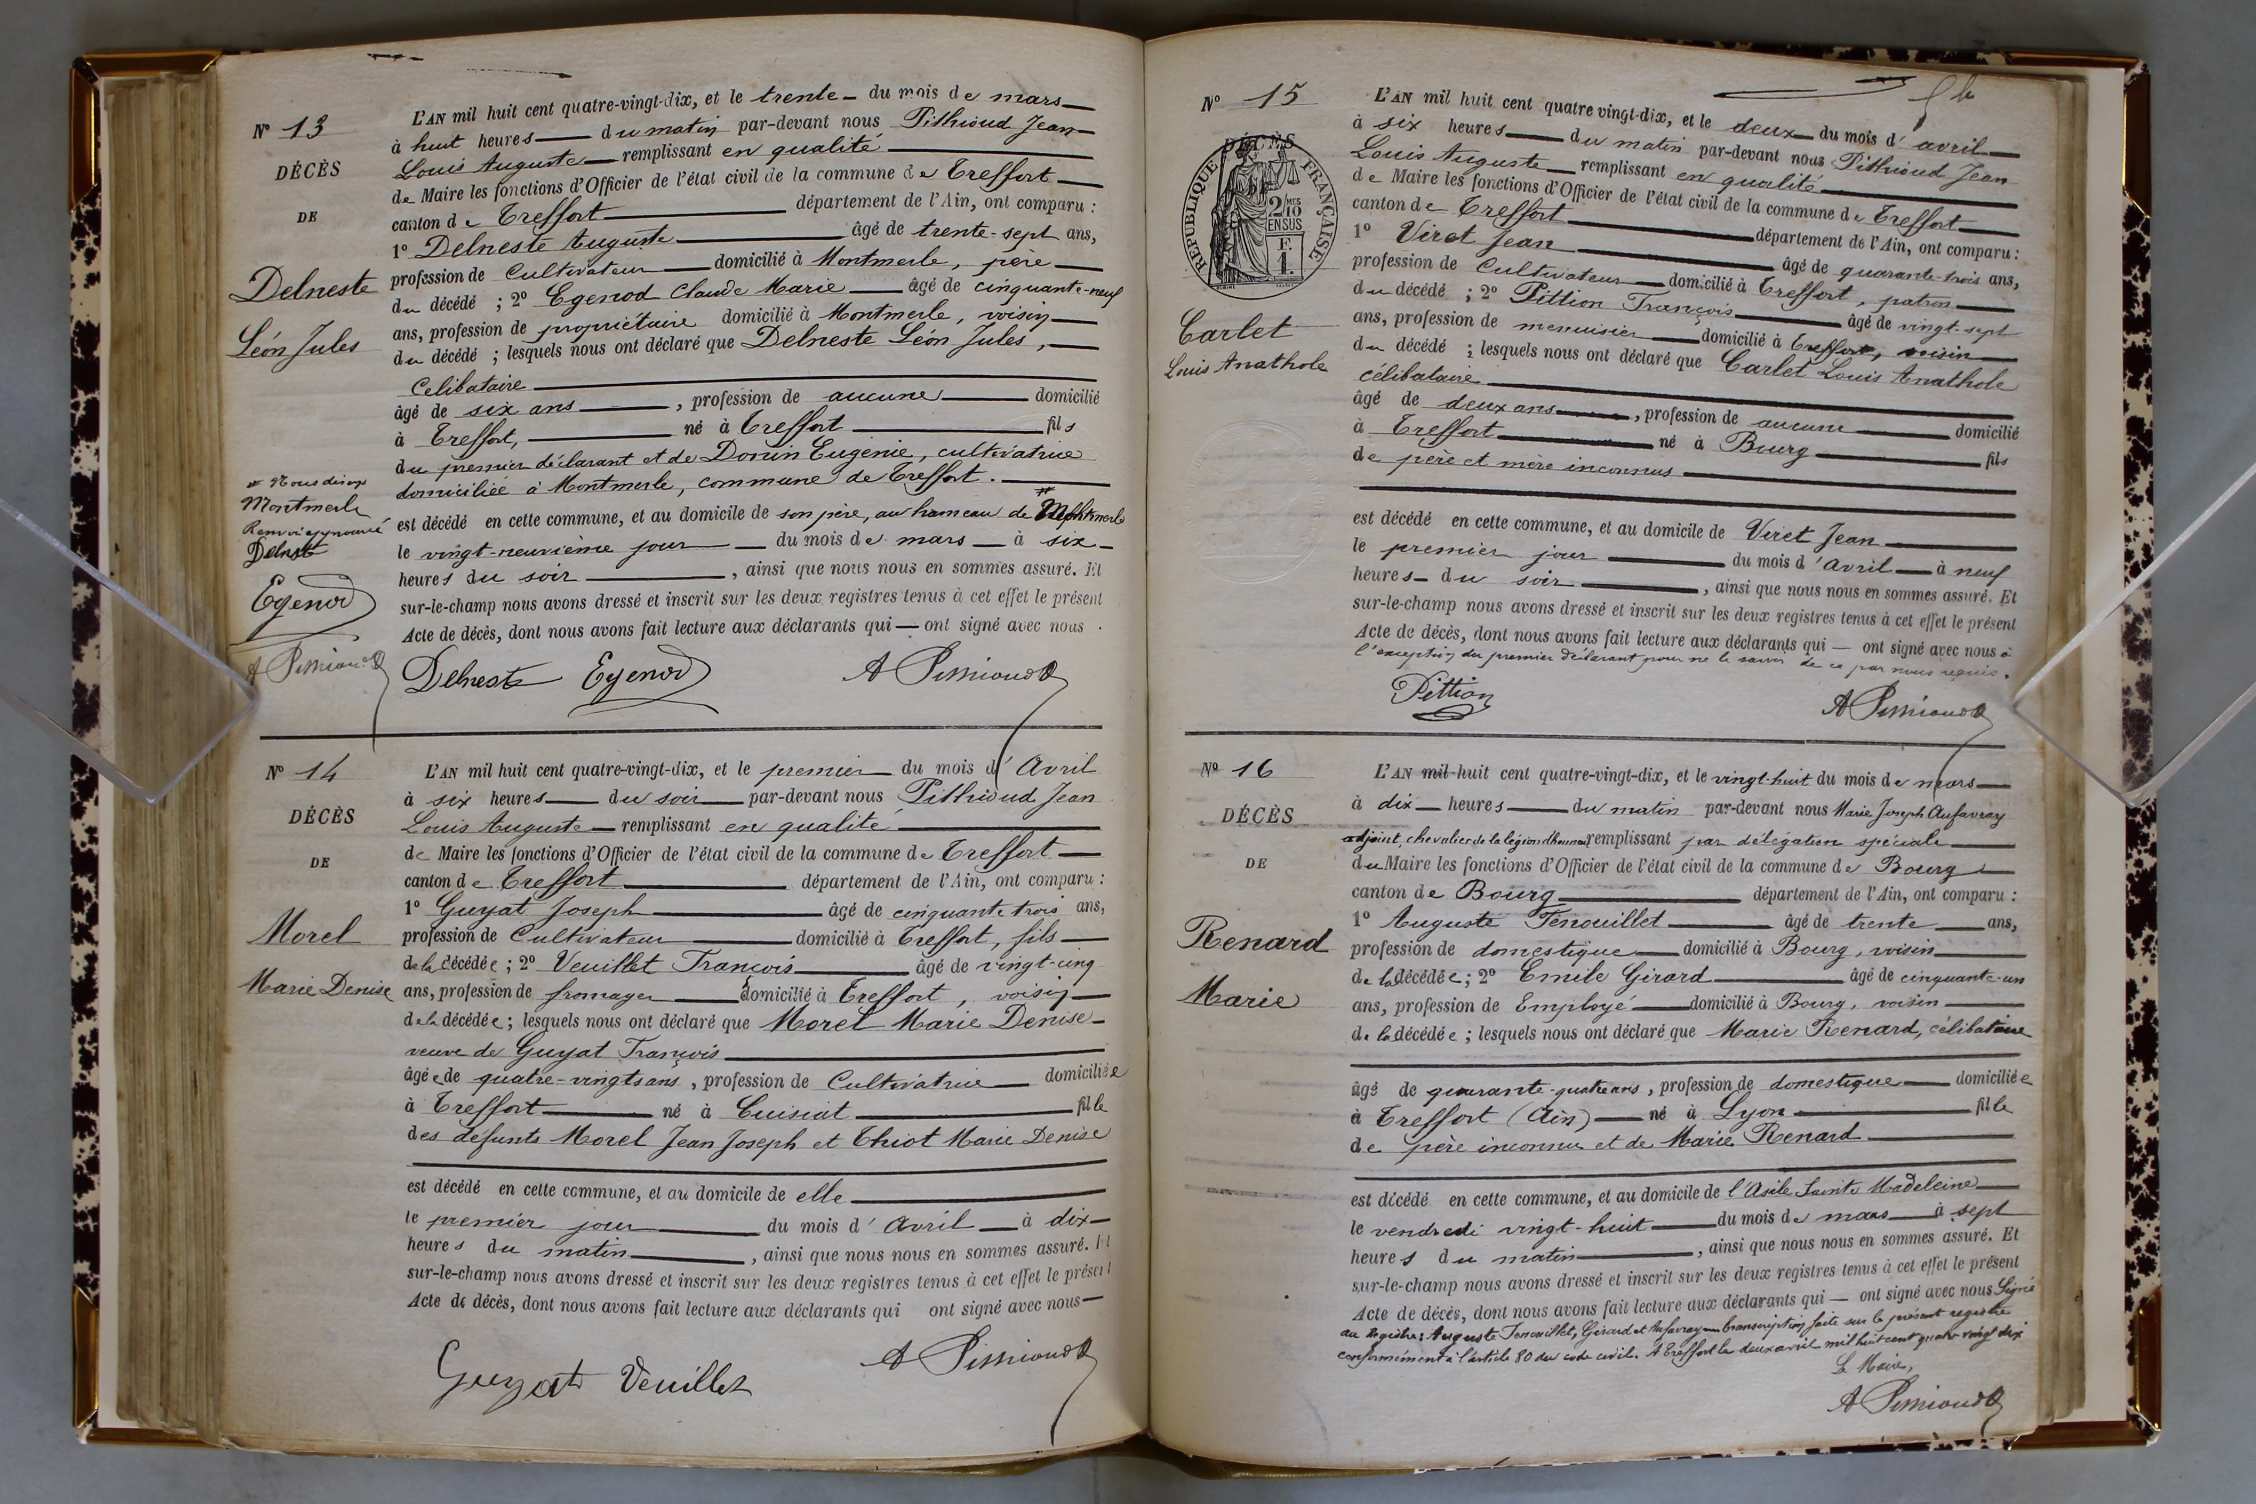 N° 13
DÉCÈS
DE
Delneste
Léon Jules
L'AN mil huit cent quatre-vingt-dix, et le trente du mois de mars
à huit heures du matin par-devant nous Pithioud Jean
Louis Auguste remplissant en qualité
de Maire les fonctions d'Officier de l'état civil de la commune de Treffort
canton de Treffort département de l'Ain, ont comparu :
1° Delneste Auguste âgé de trente-sept ans,
profession de Cultivateur domicilié à Montmerle, père
du décédé ; 2° Egenod Claude Marie âgé de cinquante-neuf
ans, profession de propriétaire domicilié à Montmerle, voisin
du décédé ; lesquels nous ont déclaré que Delneste Léon Jules,
Celibataire
âgé de six ans , profession de aucune domicilié
à Treffort, né à Treffort fils
du premier déclarant et de Donin Eugénie, cultivatrice
domiciliée à Montmerle, commune de Treffort.
est décédé en cette commune, et au domicile de son père, au hameau de # Montmerle
le vingt-neuvième jour du mois de mars à six
heures du soir , ainsi que nous nous en sommes assuré. Et
sur-le-champ nous avons dressé et inscrit sur les deux registres tenus à cet effet le présent
Acte de décès, dont nous avons fait lecture aux déclarants qui ont signé avec nous.
# Nous disons
Montmerle
Renvoi approuvé
Delneste
Egenod
A Pithioud
Delneste Egenod A Pithioud
N° 14
DÉCÈS
DE
Morel
Marie Denise
L'AN mil huit cent quatre-vingt-dix, et le premier du mois d'Avril
à six heures du soir par-devant nous Pithioud Jean
Louis Auguste remplissant en qualité
de Maire les fonctions d'Officier de l'état civil de la commune de Treffort
canton de Treffort département de l'Ain, ont comparu :
1° Guyat Joseph âgé de cinquante trois ans,
profession de Cultivateur domicilié à Treffort, fils
de la décédée ; 2° Veuillet François âgé de vingt-cinq
ans, profession de fromager domicilié à Treffort, voisin
de la décédée ; lesquels nous ont déclaré que Morel Marie Denise
veuve de Guyat François
âgée de quatre-vingts ans, profession de Cultivatrice domiciliée
à Treffort né à Cuisiat fille
des défunts Morel Jean Joseph et Thiot Marie Denise
est décédé en cette commune, et au domicile de elle
le premier jour du mois d'Avril à dix
heures du matin , ainsi que nous nous en sommes assuré. Et
sur-le-champ nous avons dressé et inscrit sur les deux registres tenus à cet effet le présent
Acte de décès, dont nous avons fait lecture aux déclarants qui ont signé avec nous
Guyat Veuillet A Pithioud
N° 15
DÉCÈS
RÉPUBLIQUE FRANÇAISE
2/10 MES
EN SUS
F.
1.
Carlet
Louis Anathole
L'AN mil huit cent quatre vingt-dix, et le deux du mois d'avril
à six heures du matin par-devant nous Pithioud Jean
Louis Auguste remplissant en qualité
de Maire les fonctions d'Officier de l'état civil de la commune de Treffort
canton de Treffort département de l'Ain, ont comparu :
1° Viret Jean âgé de quarante-trois ans,
profession de Cultivateur domicilié à Treffort, patron
du décédé ; 2° Pittion François âgé de vingt-sept
ans, profession de menuisier domicilié à Treffort, voisin
du décédé ; lesquels nous ont déclaré que Carlet Louis Anathole
célibataire
âgé de deux ans , profession de aucune domicilié
à Treffort né à Bourg fils
de père et mère inconnus
est décédé en cette commune, et au domicile de Viret Jean
le premier jour du mois d'Avril à neuf
heures du soir , ainsi que nous nous en sommes assuré. Et
sur-le-champ nous avons dressé et inscrit sur les deux registres tenus à cet effet le présent
Acte de décès, dont nous avons fait lecture aux déclarants qui ont signé avec nous à
l'exception du premier déclarant pour ne le savoir de ce par nous requis.
Pittion A Pithioud
N° 16
DÉCÈS
DE
Renard
Marie
L'AN mil huit cent quatre-vingt-dix, et le vingt-huit du mois de mars
à dix heures du matin par-devant nous Marie Joseph Aufavray
adjoint, chevalier de la légion d'honneur, remplissant par délégation spéciale
du Maire les fonctions d'Officier de l'état civil de la commune de Bourg
canton de Bourg département de l'Ain, ont comparu :
1° Auguste Fenouillet âgé de trente ans,
profession de domestique domicilié à Bourg, voisin
de la décédée ; 2° Emile Girard âgé de cinquante-un
ans, profession de Employé domicilié à Bourg, voisin
de la décédée ; lesquels nous ont déclaré que Marie Renard, célibataire
âgé de quarante-quatre ans, profession de domestique domiciliée
à Treffort (Ain) né à Lyon fille
de père inconnu et de Marie Renard
est décédé en cette commune, et au domicile de l'Asile Sainte Madeleine
le vendredi vingt-huit du mois de mars à sept
heures du matin , ainsi que nous nous en sommes assuré. Et
sur-le-champ nous avons dressé et inscrit sur les deux registres tenus à cet effet le présent
Acte de décès, dont nous avons fait lecture aux déclarants qui ont signé avec nous Signé
au Registre : Auguste Fenouillet, Girard et Aufavray transcription faite sur le présent registre
conformément à l'article 80 du code civil. A Treffort le deux avril mil huit cent quatre vingt dix
Le Maire,
A Pithioud